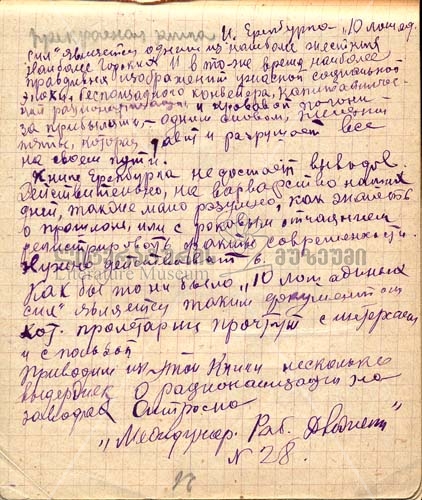 И. Еренбурга – "10 лошад.
сил" является одним из наиболее жестких
наиболее горьких И в то-же время наиболее
правдивых изображений ужасной социальной
эпохи, беспощадного конвейера, капиталистичес-
кой рационализации и кровавой погони
за прибылями, – одним словом,
которая давит и разрушает все
на своем пути.
Книге Еренбурга не достает выводов.
Действительно, на варварство наших
дней, также мало разумно, как
о прошлом, или с роковым отчаянием
регистрировать факты современности.
Нужно
ლიტერატურის მუზეუმი
Literature Museum
Как бы то ни было "10 лошадиных
сил" является таким документом
кот. пролетарии прочтут с интересом
и с пользой
Приводим из этой книги несколько
выдержек о рационализации на
заводах Ситроена
"Междунар. Раб. Движен"
N 28.